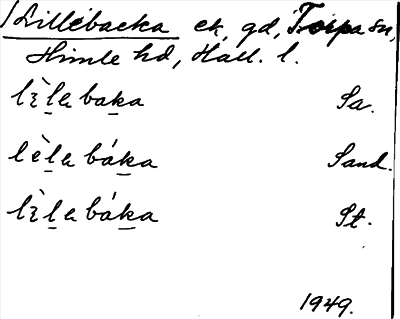 Lillebacka ek, gd, Torpa sn,
Himle hd, Hall. l.
lɛ̀lebaka Sa.
lèlebáka Sand.
lɛ̀lebáka St.
1949.